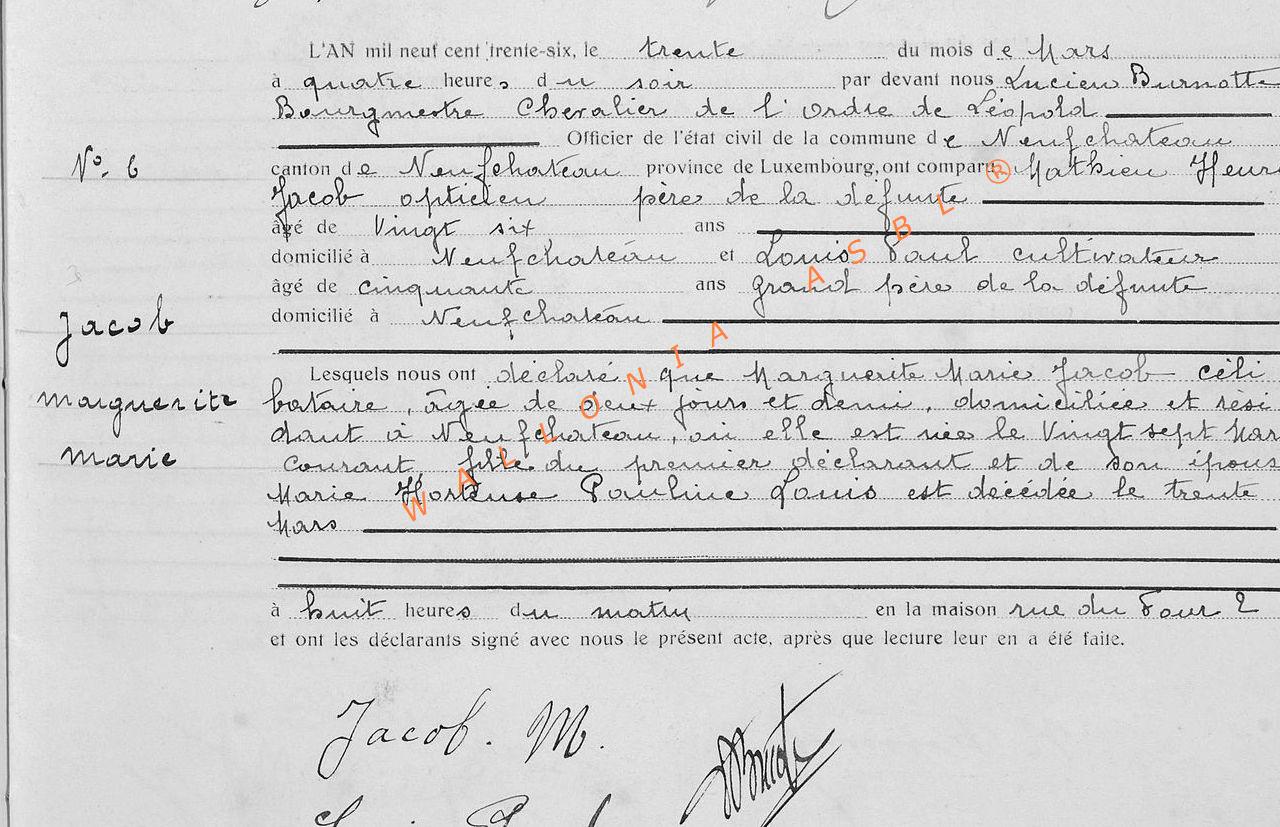 L'AN mil neuf cent trente-six, le trente du mois de Mars
à quatre heures du soir par devant nous Lucien Burnotte
Bourgmestre Chevalier de l'Ordre de Léopold
Officier de l'état civil de la commune de Neufchateau
N° 6
canton de Neufchateau province de Luxembourg, ont comparu Mathieu Henri
Jacob opticien père de la défunte
âgé de Vingt six ans
domicilié à Neufchateau et Louis Paul cultivateur
âgé de cinquante ans Grand père de la défunte
domicilié à Neufchateau
Jacob
Marguerite
Marie
Lesquels nous ont déclaré que Marguerite Marie Jacob céli
bataire, âgée de deux jours et demi, domiciliée et rési
dant à Neufchateau, où elle est née le Vingt sept Mars
courant, fille du premier déclarant et de son épouse
Marie Hortense Pauline Louis est décédée le trente
Mars
à huit heures du matin en la maison rue du Four 2
et ont les déclarants signé avec nous le présent acte, après que lecture leur en a été faite.
WALLONIA ASBL ®
Jacob. M.